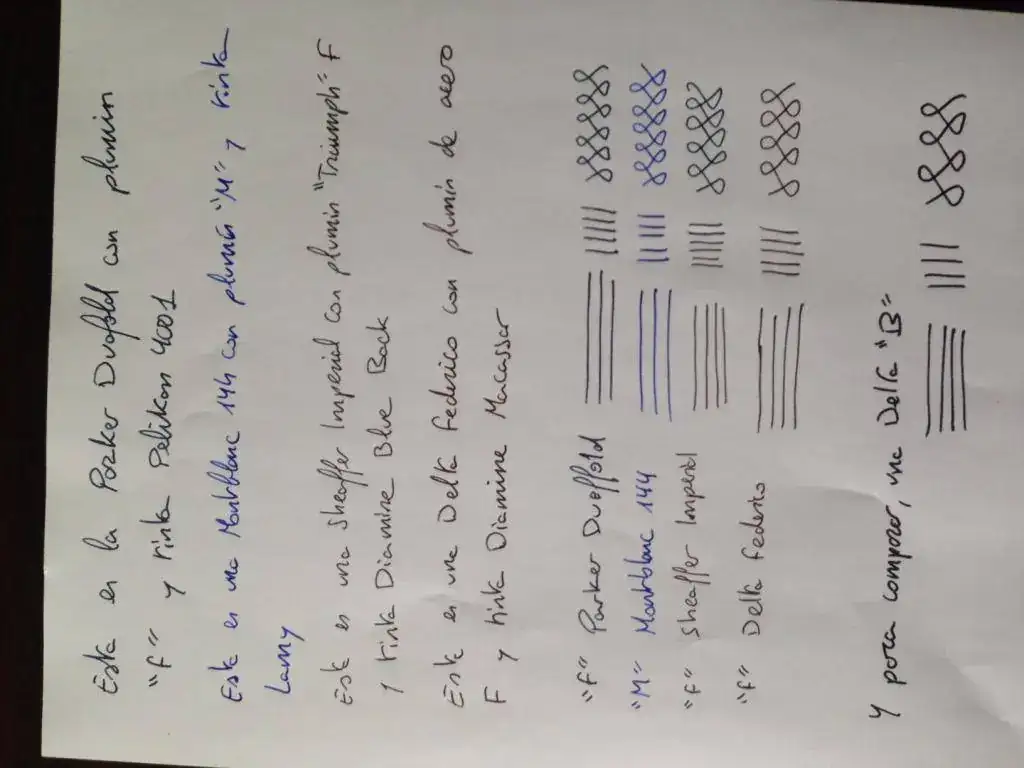 Esta es la Parker Duofold con plumin
"F" y tinta Pelikan 4001
Esta es una Montblanc 144 con plumin "M" y tinta
Lamy
Esta es una Sheaffer Imperial con plumin "Triumph" F
y tinta Diamine Blue Back
Esta es una Delta Federico con plumín de acero
F y tinta Diamine Macassar
"F" Parker Duoffold
"M" Montblanc 144
"F" Sheaffer Imperial
"F" Delta Federico
Y para comparar, una Delta "B"